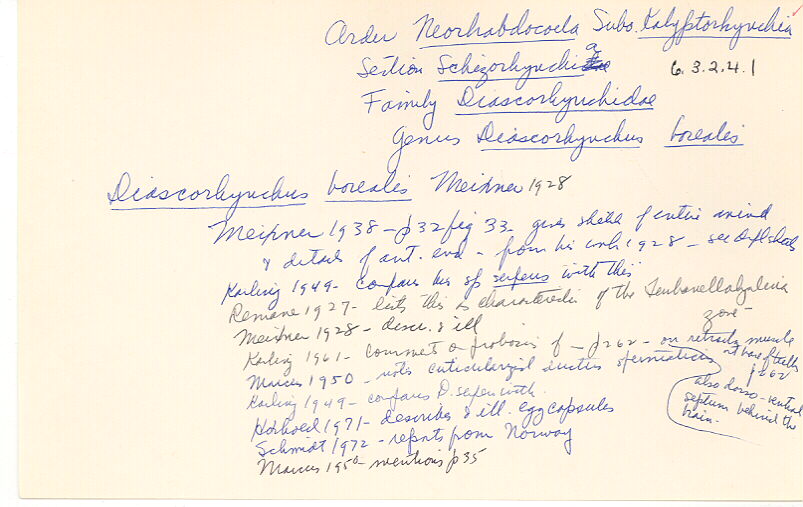 Order Neorhabdocoela Subo. Kalyptorhynchia
Section Schizorhynchia 6.3.2.4.1
Family Diascorhynchidae
Genus Diascorhynchus borealis
Diascorhynchus borealis Meixner 1928
Meixner 1938 - p32 fig 33 gives sketch of entire animal
& details of ant. end - from his work 1928 - see sheets
Karling 1949 - compares his sp serpens with this
Remane 1927 - lists this as characteristic of the zone -
Meixner 1928 - descr. & ill
Karling 1961 - comments on proboscis of - p262 - on retractor muscle at base of p262
Marcus 1950 - notes cuticularized ductus spermaticus
also dorso-ventral septum behind the brain.
Karling 1949 - compares D. serpens with.
1971 - describes & ill. egg capsules
Schmidt 1972 - reports from Norway
Marcus 1950 - mentions p35